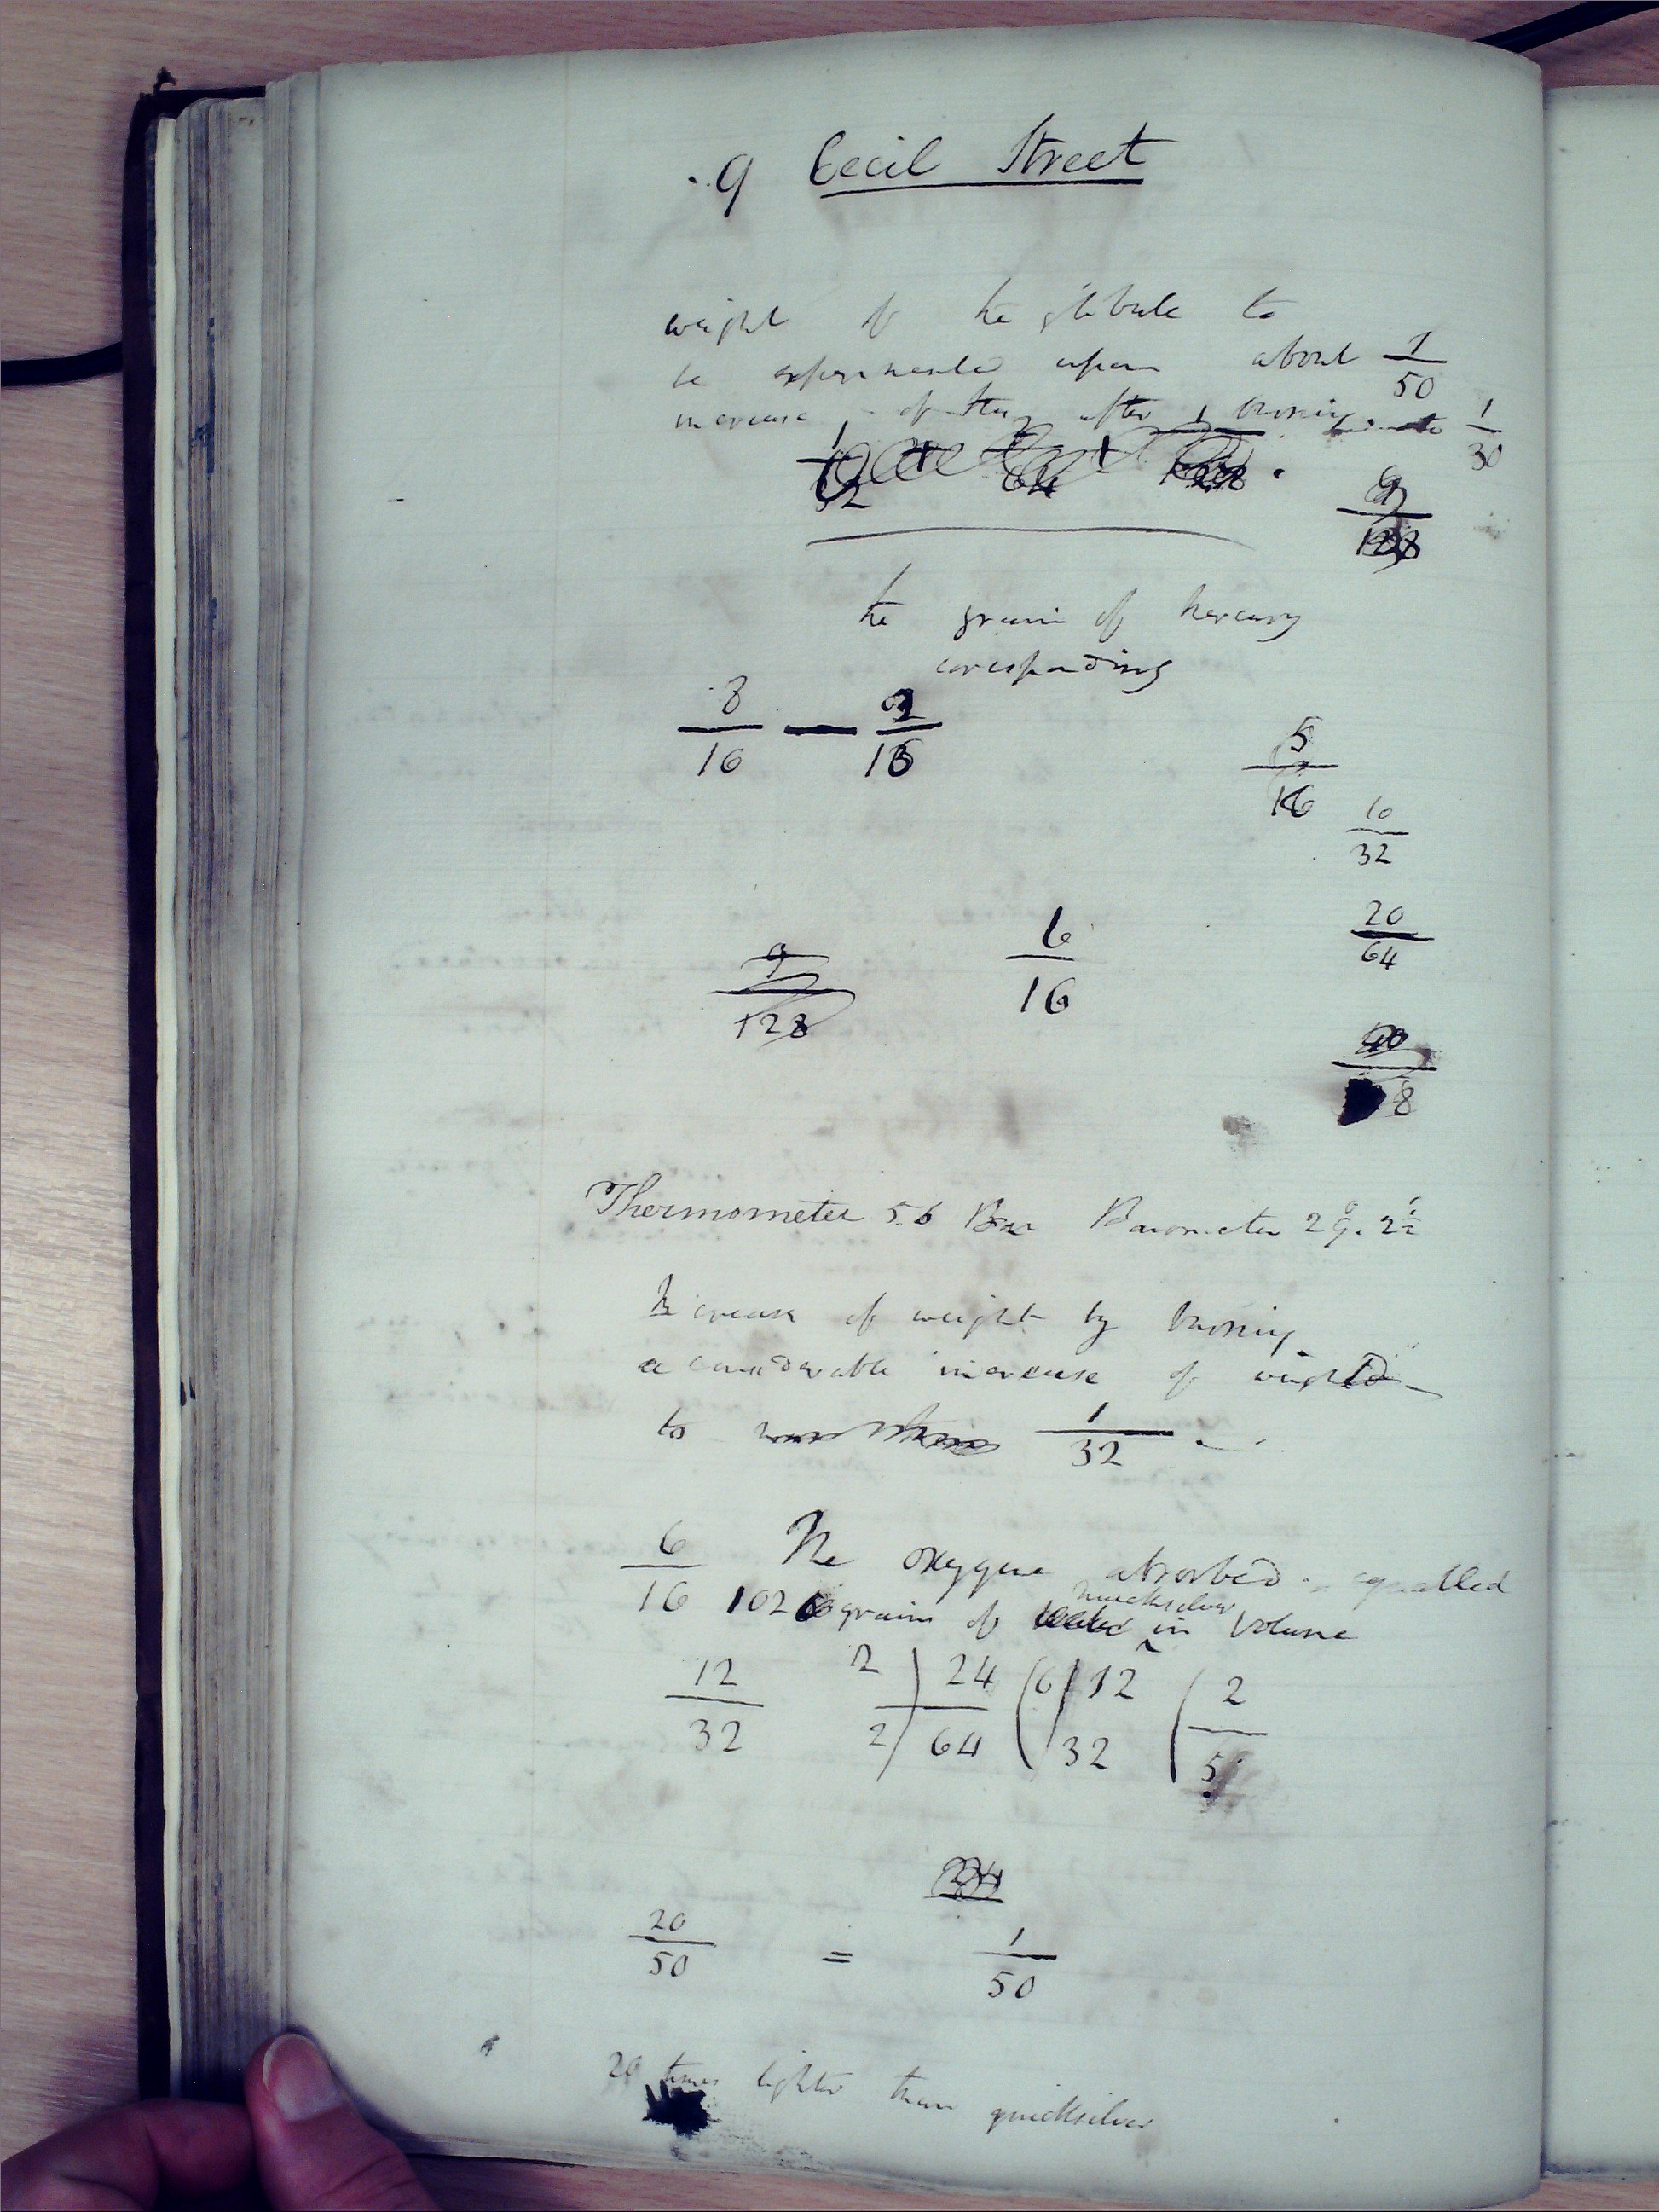 9 Cecil Street
weight of the globule to
be experimented upon about 1/50
increase of the after burning to 1/30
1/32 + 64 + 1/128 .
9/128
the grain of mercury
coresponding
8/16 — 16
5/16
10/32
20/64
9/128 6/16
40/ 8
Thermometer 56 Bar Barometer 29. 2 1/2
Increase of weight by burning
a considerable increase of weight
to 1/32
6/16 The oxygene absorbed equalled
102 grains of quicksilver in volume
12/32 2) 24/64 (6) 12/32 ( 2/5
234
20/50 = 1/50
20 times lighter than quicksilver